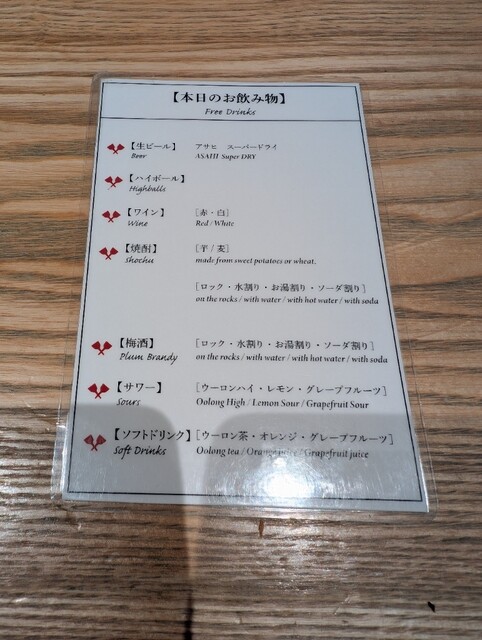 【本日のお飲み物】
Free Drinks
【生ビール】 アサヒ スーパードライ
Beer ASAHI Super DRY
【ハイボール】
Highballs
【ワイン】 [赤・白]
Wine Red / White
【焼酎】 [芋 / 麦]
Shochu made from sweet potatoes or wheat.
[ロック・水割り・お湯割り・ソーダ割り]
on the rocks / with water / with hot water / with soda
【梅酒】 [ロック・水割り・お湯割り・ソーダ割り]
Plum Brandy on the rocks / with water / with hot water / with soda
【サワー】 [ウーロンハイ・レモン・グレープフルーツ]
Sours Oolong High / Lemon Sour / Grapefruit Sour
【ソフトドリンク】 [ウーロン茶・オレンジ・グレープフルーツ]
Soft Drinks Oolong tea / Orange juice / Grapefruit juice